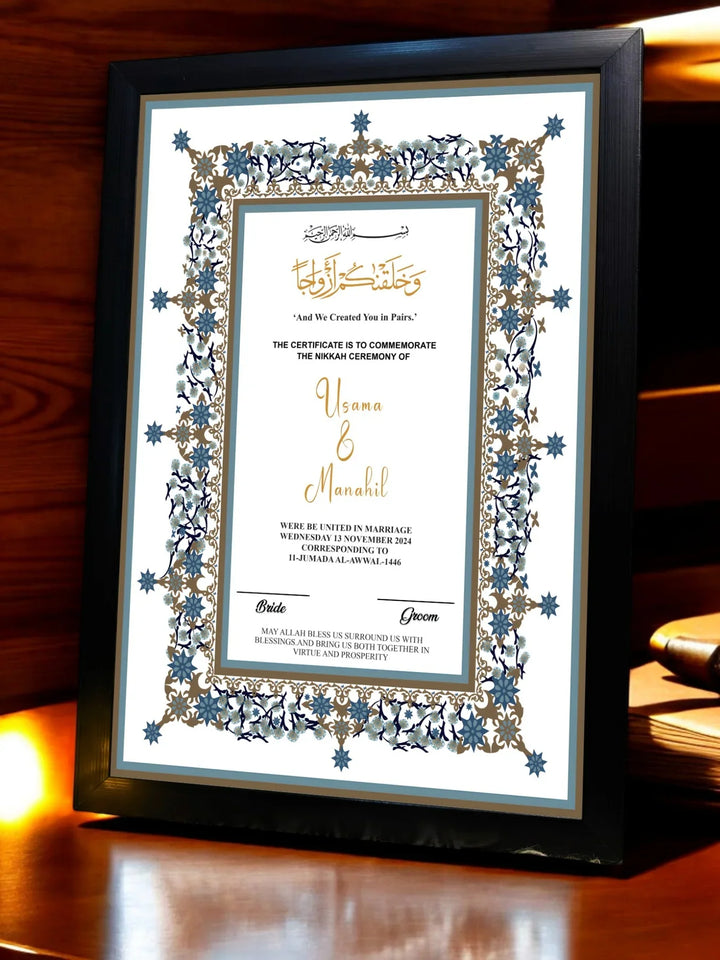 بسم الله الرحمن الرحيم
وَخَلَقْنَاكُمْ أَزْوَاجًا
‘And We Created You in Pairs.’
THE CERTIFICATE IS TO COMMEMORATE
THE NIKKAH CEREMONY OF
Usama
&
Manahil
WERE BE UNITED IN MARRIAGE
WEDNESDAY 13 NOVEMBER 2024
CORRESPONDING TO
11-JUMADA AL-AWWAL-1446
Bride
Groom
MAY ALLAH BLESS US SURROUND US WITH
BLESSINGS.AND BRING US BOTH TOGETHER IN
VIRTUE AND PROSPERITY